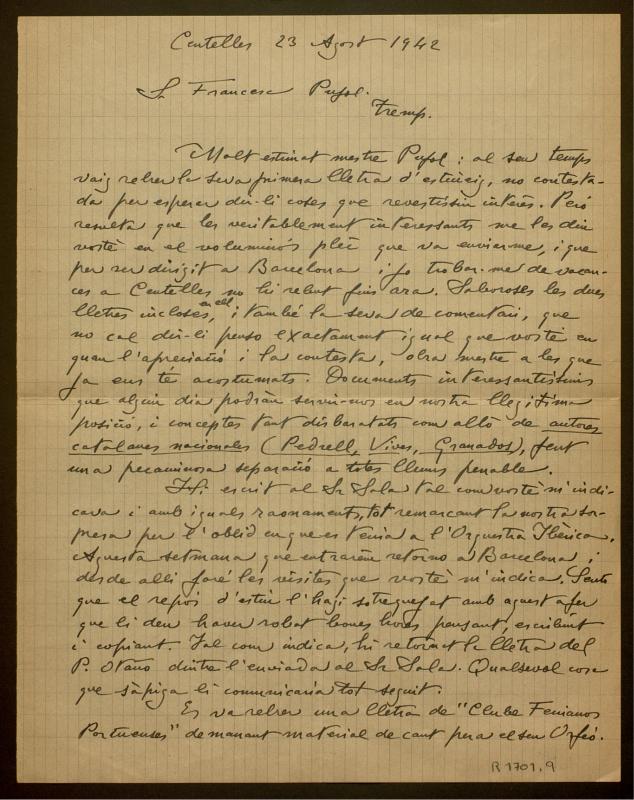 Centelles 23 Agost 1942
Sr Francesc Pujol.
Tremp.
Molt estimat mestre Pujol: al seu temps
vaig rebrer la seva primera lletra d'estiueig, no contesta-
da per esperar dir-li coses que revestissin interès. Però
resulta que les veritablement interessants me les diu
vostè en el voluminós plec que va enviar-me, i que
per ser dirigit a Barcelona i jo trobar-me de vacan-
ces a Centelles no hi rebut fins ara. Saboroses les dues
lletres incloses en ell, i també la seva de comentari, que
no cal dir-li penso exactament igual que vostè en
quan l'apreciació i la contesta, obra mestre a les que
ja ens té acostumats. Documents interessantíssims
que algun dia podràn servir-nos en nostra llegítima
posició, i conceptes tant disbaratats com allò de autores
catalanes nacionales (Pedrell, Vives, Granados), fent
una pecaminosa separació a totes llums penable.
Hi escrit al Sr Sala tal com vostè m'indi-
cava i amb iguals raonaments, tot remarcant la nostra sor-
presa per l'oblid en que es tenia a l'Orquestra Ibèrica.
Aquesta setmana que entrarèm retorno a Barcelona i
desde alli faré les visites que vostè m'indica. Sento
que el repòs d'estiu l'hagi sotreguejat amb aquest afer
que li deu haver robat bones hores pensant, escribint
i copiant. Tal com indica, hi retornat la lletra del
P. Otaño dintre l'enviada al Sr Sala. Qualsevol cosa
que sàpiga li comunicaria tot seguit.
Es va rebrer una lletra de "Clube Fenianos
Portuenses" demanant material de cant pera el seu Orfeó.
R 1701,9